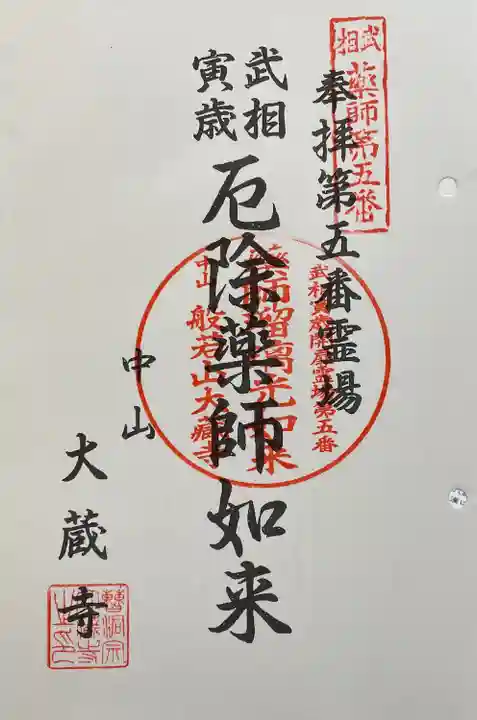 武相
薬師第五番
奉拝第五番霊場
武相寅歳
厄除薬師如来
武相寅歳開扉霊場第五番
薬師瑠璃光如来
中山
般若山大蔵寺
中山
大蔵寺
曹洞宗